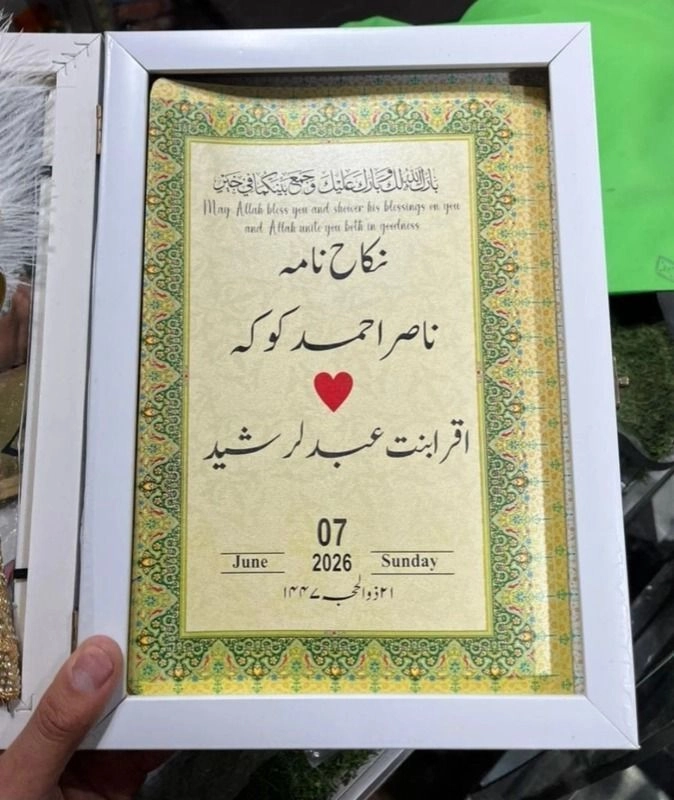 بارك الله لك وبارك عليك وجمع بينكما في خير
May Allah bless you and shower his blessings on you
and Allah unite you both in goodness
نکاح نامہ
ناصر احمد کوکہ
اقرا بنت عبدلرشید
07
June 2026 Sunday
۲۱ ذوالحجہ ۱۴۴۷